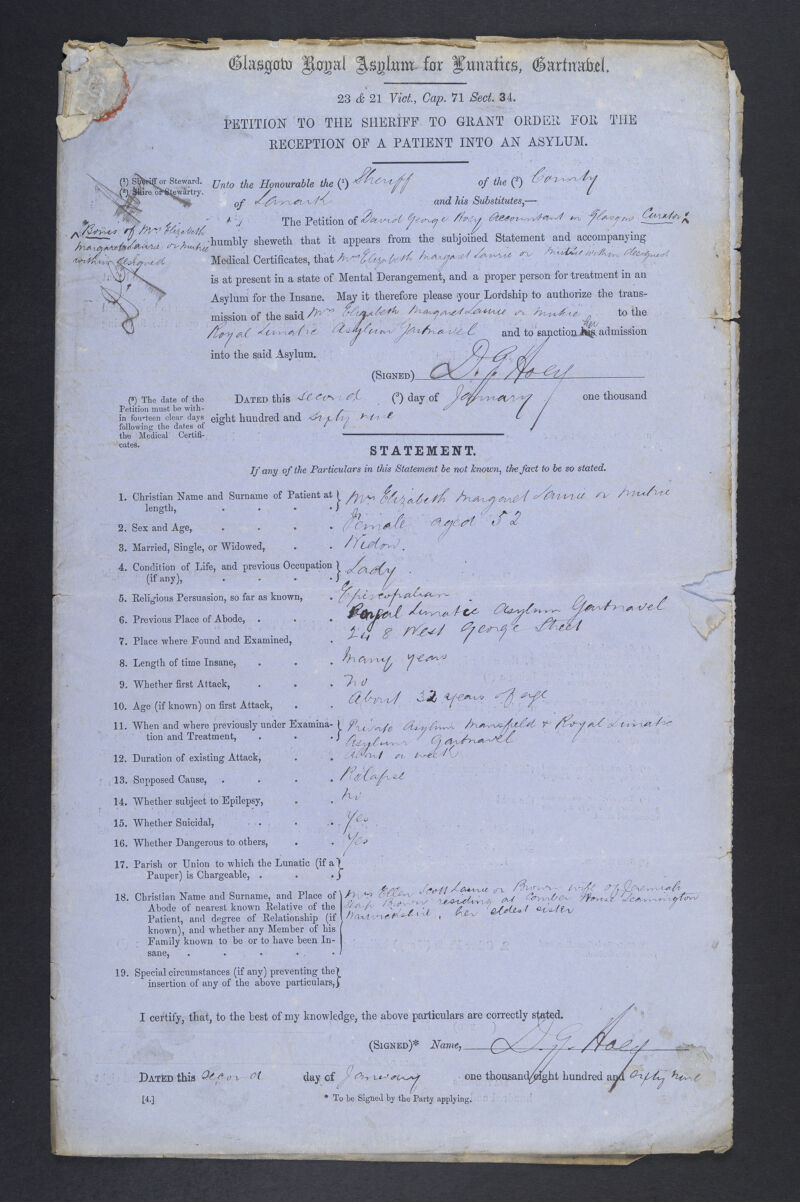 Glasgow Royal Asylum for Lunatics, Gartnavel.
23 & 21 Vict., Cap. 71 Sect. 34.
PETITION TO THE SHERIFF TO GRANT ORDER FOR THE
RECEPTION OF A PATIENT INTO AN ASYLUM.
(¹) Sheriff or Steward.
(²) Shire or Stewartry.
Unto the Honourable the (¹) Sheriff of the (²) County
of Lanark and his Substitutes,—
The Petition of David George Hoey Accountant in Glasgow Curator
Bonis of Mrs Elizabeth
Margaret Laurie or Mutrie
within designed
humbly sheweth that it appears from the subjoined Statement and accompanying
Medical Certificates, that Mrs Elizabeth Margaret Laurie or Mutrie within designed
is at present in a state of Mental Derangement, and a proper person for treatment in an
Asylum for the Insane. May it therefore please your Lordship to authorize the trans-
mission of the said Mrs Elizabeth Margaret Laurie or Mutrie to the
Royal Lunatic Asylum Gartnavel and to sanction his her admission
into the said Asylum.
(SIGNED) D. G. Hoey
(³) The date of the
Petition must be with-
in fourteen clear days
following the dates of
the Medical Certifi-
cates.
DATED this second (³) day of January one thousand
eight hundred and sixty nine
STATEMENT.
If any of the Particulars in this Statement be not known, the fact to be so stated.
1. Christian Name and Surname of Patient at
length, Mrs Elizabeth Margaret Laurie or Mutrie
2. Sex and Age, Female aged 52
3. Married, Single, or Widowed, Widow.
4. Condition of Life, and previous Occupation
(if any), Lady.
5. Religious Persuasion, so far as known, Episcopalian
6. Previous Place of Abode, Royal Lunatic Asylum Gartnavel
7. Place where Found and Examined, 248 West George Street
8. Length of time Insane, Many years
9. Whether first Attack, No
10. Age (if known) on first Attack, About 32 years of age
11. When and where previously under Examina-
tion and Treatment, Private Asylum Mansfield & Royal Lunatic
Asylum Gartnavel
12. Duration of existing Attack, about a week
13. Supposed Cause, Relapse
14. Whether subject to Epilepsy, No
15. Whether Suicidal, Yes
16. Whether Dangerous to others, Yes
17. Parish or Union to which the Lunatic (if a
Pauper) is Chargeable,
18. Christian Name and Surname, and Place of
Abode of nearest known Relative of the
Patient, and degree of Relationship (if
known), and whether any Member of his
Family known to be or to have been In-
sane,
Mrs Ellen Scott Laurie or Brown wife of Jeremiah
Brown residing at House Leamington
Warwickshire, her eldest sister
19. Special circumstances (if any) preventing the
insertion of any of the above particulars,
I certify, that, to the best of my knowledge, the above particulars are correctly stated.
(SIGNED)* Name, D. G. Hoey
DATED this second day of January one thousand eight hundred and sixty nine
[4.]
* To be Signed by the Party applying.